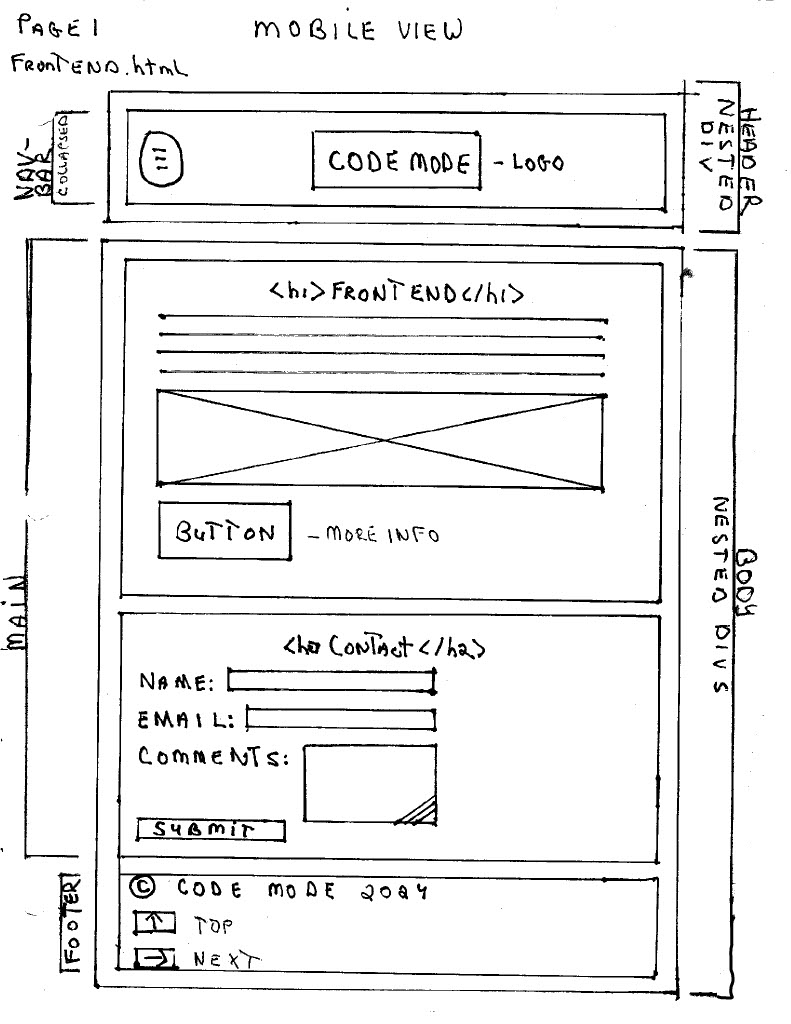 PAGE 1
MOBILE VIEW
FRONTEND.html
NAV-BAR
COLLAPSED
CODE MODE - LOGO
HEADER
NESTED DIV
<h1>FRONT END</h1>
BUTTON - MORE INFO
MAIN
BODY
NESTED DIVS
CONTACT </h2>
NAME:
EMAIL:
COMMENTS:
SUBMIT
FOOTER
© CODE MODE 2024
↑ TOP
→ NEXT